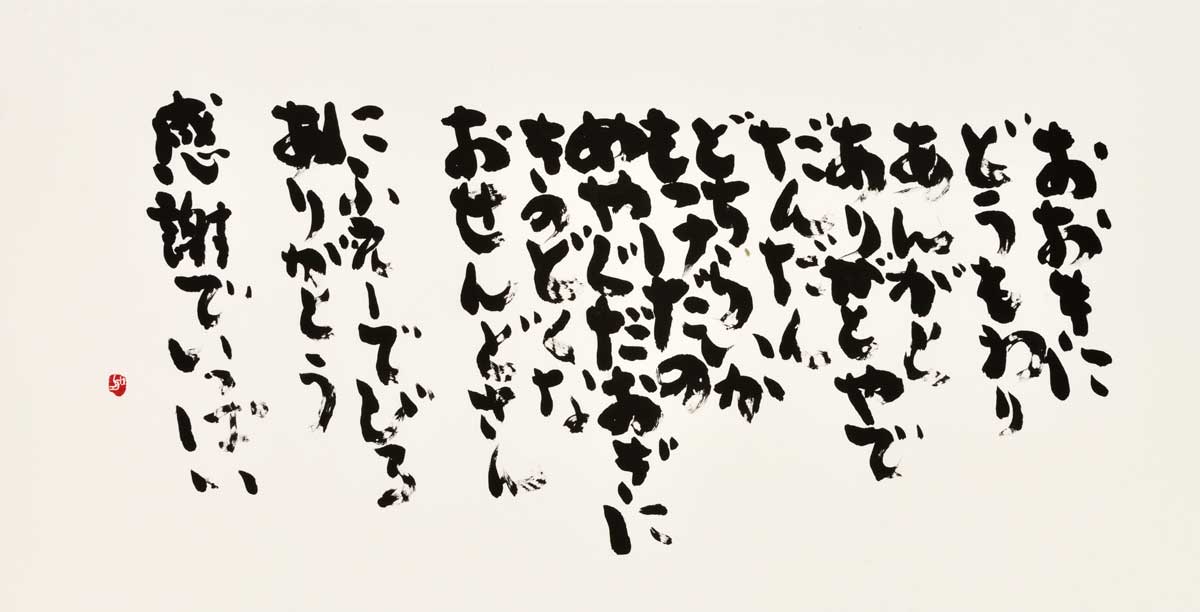 おおきに
どうもわり
あんがと
ありがとやで
だんだん
どちらいか
もっけだの
めやぐだおぎに
きのどくな
おせんどさん
にふぇーでびる
ありがとう
感謝でいっぱい